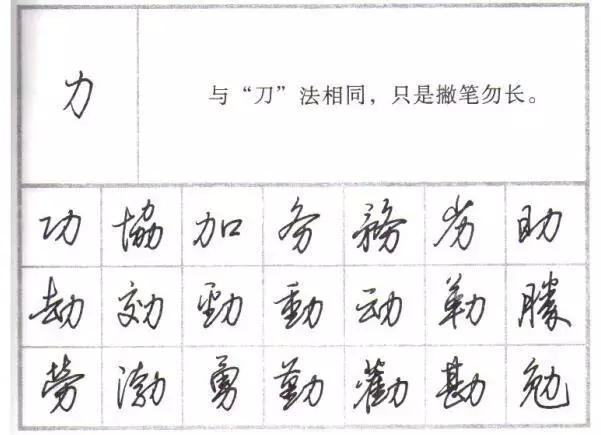 力 与“刀”法相同，只是撇笔勿长。
功 協 加 务 務 劣 助
劫 効 勁 動 动 勒 勝
勞 渤 勇 勤 勸 勘 勉